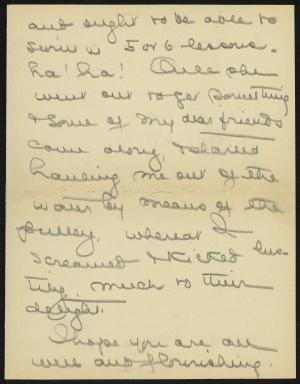 and ought to be able to
swim in 5 or 6 lessons.
ha! ha! Once she
went out to get something
& some of my dear friends
came along, & started
hauling me out of the
water by means of the
pulley, whereat I
screamed & kicked lus-
tily, much to their
delight.
I hope you are all
well and flourishing.